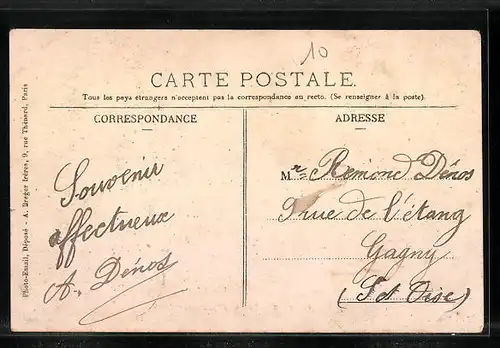 10
CARTE POSTALE.
Tous les pays étrangers n'acceptent pas la correspondance au recto. (Se renseigner à la poste).
CORRESPONDANCE
ADRESSE
Souvenir
affectueux
A. Dénos
Mr Remond Dénos
9 rue de l'étang
Gagny
(S et Oise)
Photo-Email, Déposé - A. Breger frères, 9, rue Thénard, Paris